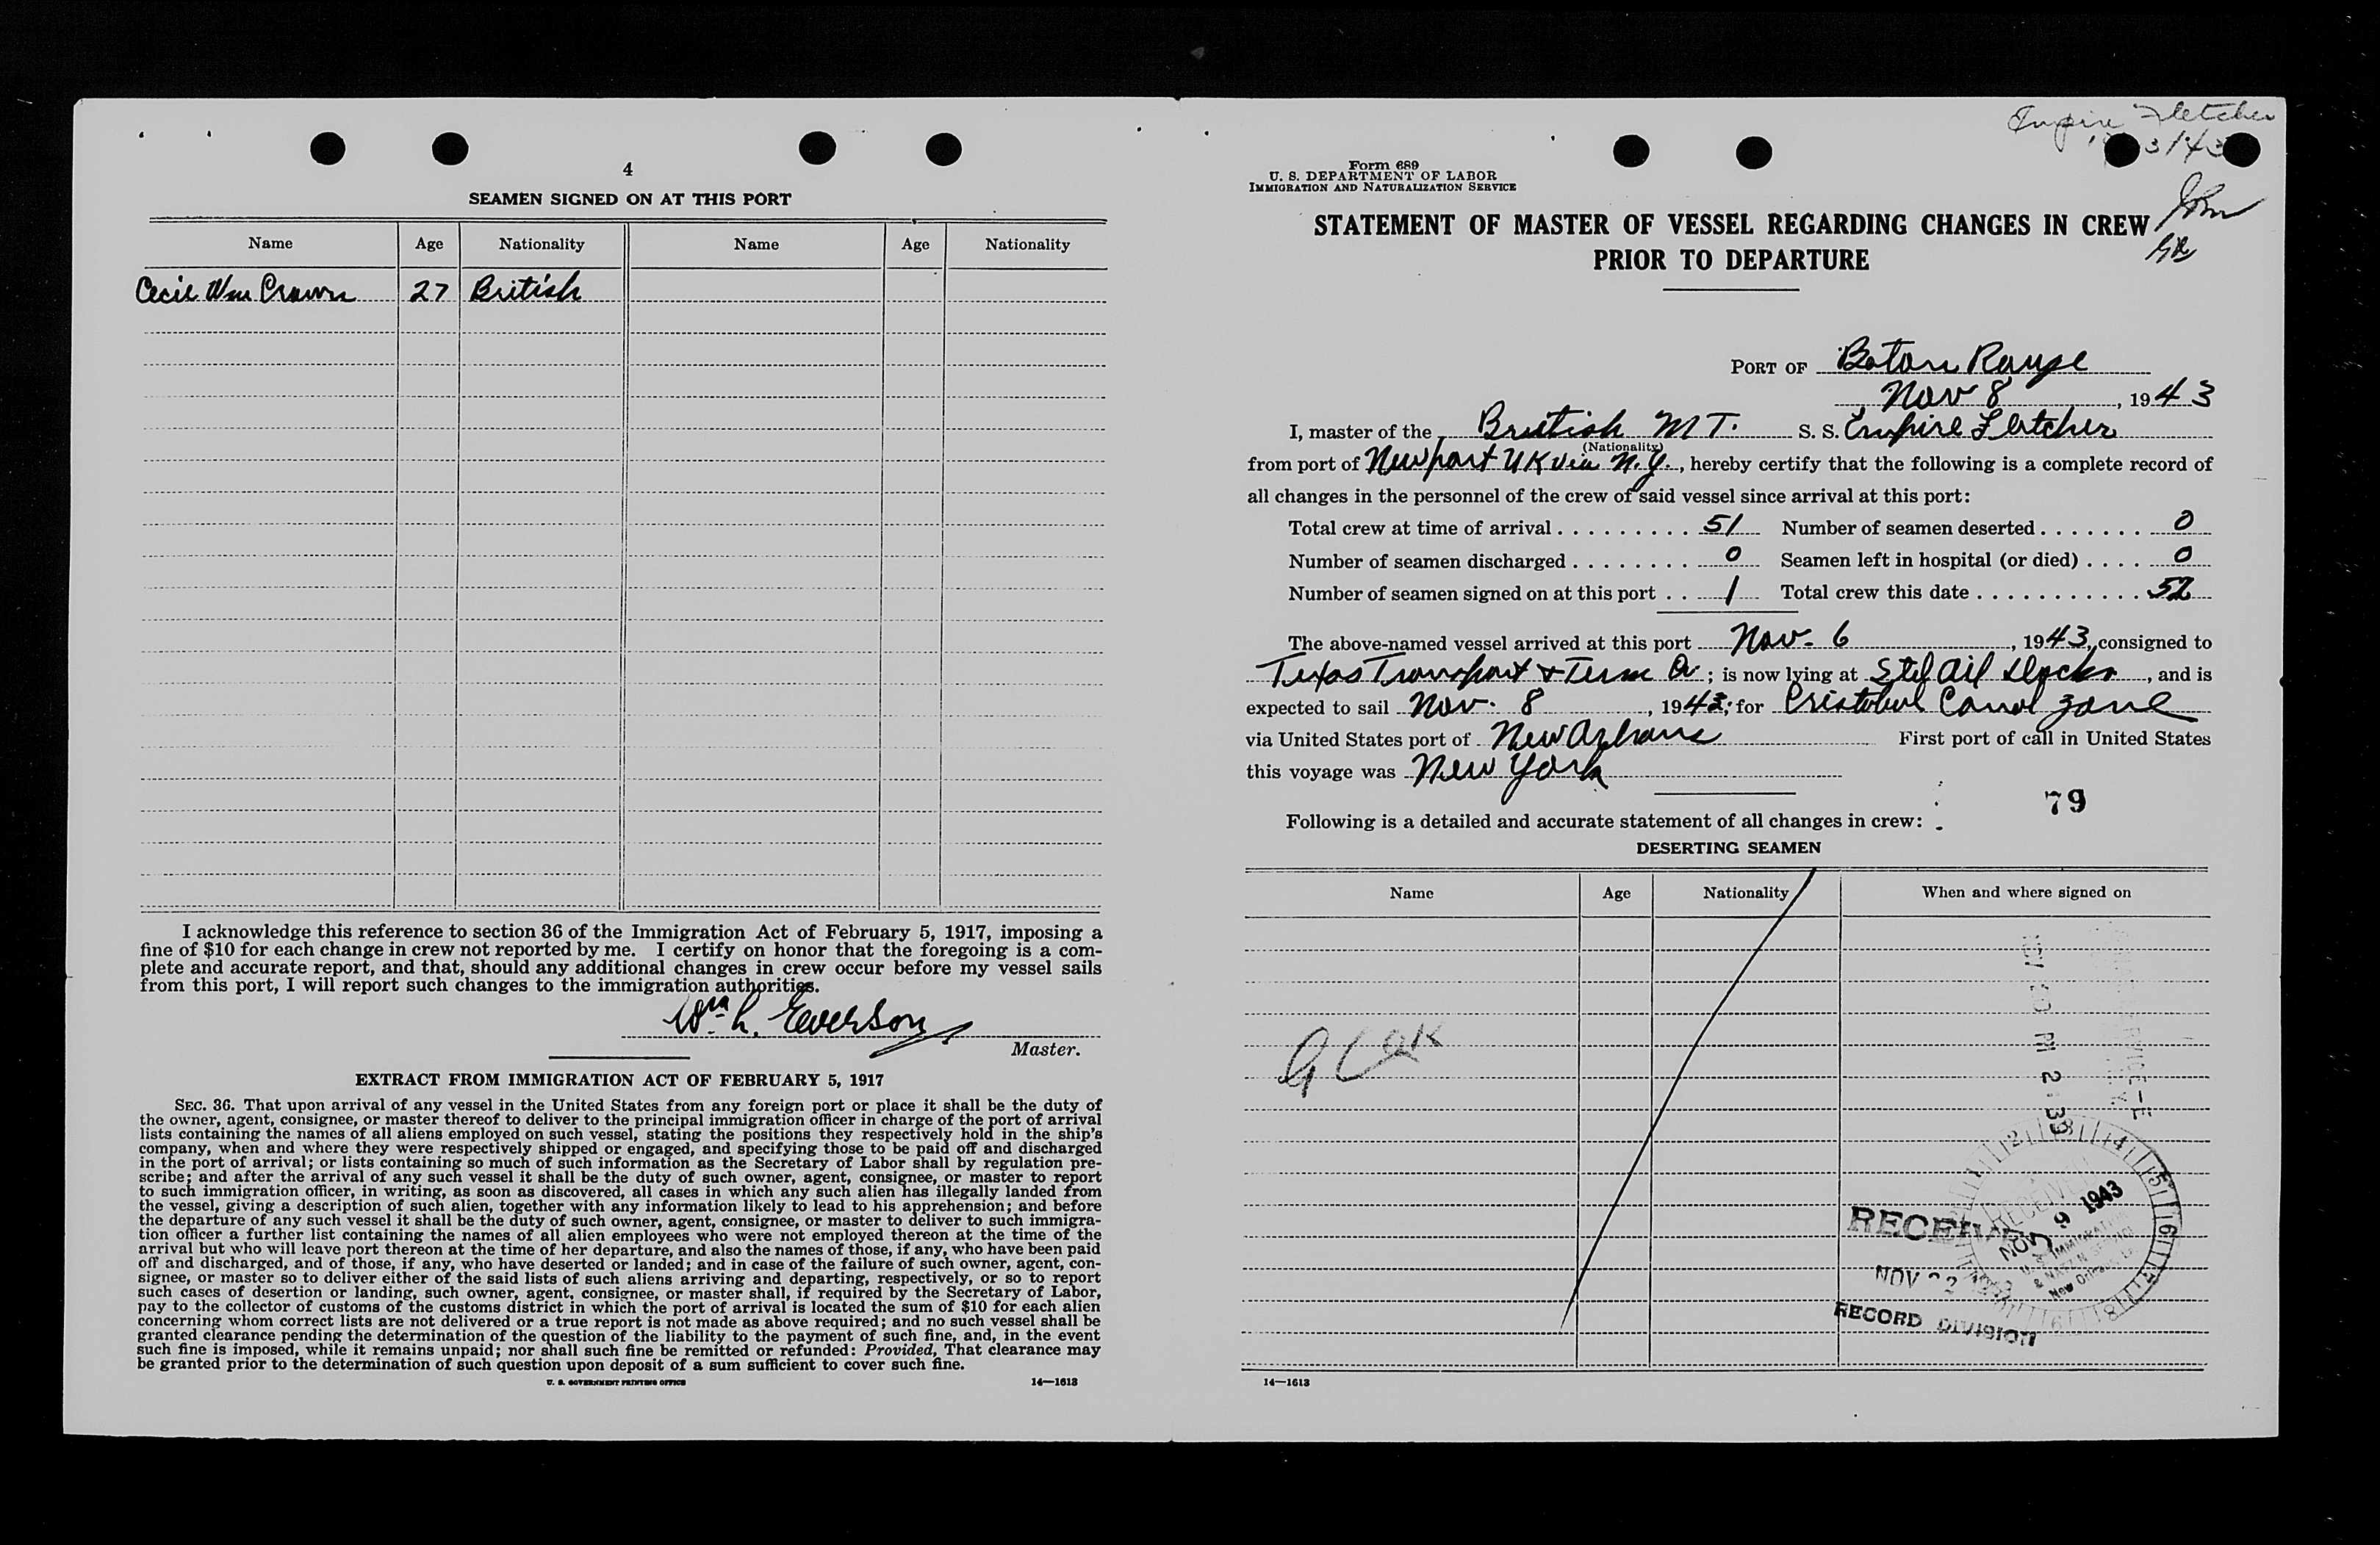 4
SEAMEN SIGNED ON AT THIS PORT
Name Age Nationality Name Age Nationality
Cecil Wm 27 British
I acknowledge this reference to section 36 of the Immigration Act of February 5, 1917, imposing a
fine of $10 for each change in crew not reported by me. I certify on honor that the foregoing is a com-
plete and accurate report, and that, should any additional changes in crew occur before my vessel sails
from this port, I will report such changes to the immigration authorities.
Wm. L. Everson
Master.
EXTRACT FROM IMMIGRATION ACT OF FEBRUARY 5, 1917
SEC. 36. That upon arrival of any vessel in the United States from any foreign port or place it shall be the duty of
the owner, agent, consignee, or master thereof to deliver to the principal immigration officer in charge of the port of arrival
lists containing the names of all aliens employed on such vessel, stating the positions they respectively hold in the ship's
company, when and where they were respectively shipped or engaged, and specifying those to be paid off and discharged
in the port of arrival; or lists containing so much of such information as the Secretary of Labor shall by regulation pre-
scribe; and after the arrival of any such vessel it shall be the duty of such owner, agent, consignee, or master to report
to such immigration officer, in writing, as soon as discovered, all cases in which any such alien has illegally landed from
the vessel, giving a description of such alien, together with any information likely to lead to his apprehension; and before
the departure of any such vessel it shall be the duty of such owner, agent, consignee, or master to deliver to such immigra-
tion officer a further list containing the names of all alien employees who were not employed thereon at the time of the
arrival but who will leave port thereon at the time of her departure, and also the names of those, if any, who have been paid
off and discharged, and of those, if any, who have deserted or landed; and in case of the failure of such owner, agent, con-
signee, or master so to deliver either of the said lists of such aliens arriving and departing, respectively, or so to report
such cases of desertion or landing, such owner, agent, consignee, or master shall, if required by the Secretary of Labor,
pay to the collector of customs of the customs district in which the port of arrival is located the sum of $10 for each alien
concerning whom correct lists are not delivered or a true report is not made as above required; and no such vessel shall be
granted clearance pending the determination of the question of the liability to the payment of such fine, and, in the event
such fine is imposed, while it remains unpaid; nor shall such fine be remitted or refunded: Provided, That clearance may
be granted prior to the determination of such question upon deposit of a sum sufficient to cover such fine.
U. S. GOVERNMENT PRINTING OFFICE 14—1613
Empire Fletcher
3/43
Form 689
U. S. DEPARTMENT OF LABOR
IMMIGRATION AND NATURALIZATION SERVICE
STATEMENT OF MASTER OF VESSEL REGARDING CHANGES IN CREW
PRIOR TO DEPARTURE
PORT OF Baton Rouge
Nov 8, 1943
I, master of the British MT. S. S. Empire Fletcher
(Nationality)
from port of Newport UK via N.Y., hereby certify that the following is a complete record of
all changes in the personnel of the crew of said vessel since arrival at this port:
Total crew at time of arrival 51 Number of seamen deserted 0
Number of seamen discharged 0 Seamen left in hospital (or died) 0
Number of seamen signed on at this port 1 Total crew this date 52
The above-named vessel arrived at this port Nov. 6, 1943, consigned to
Texas Transport & Term Co; is now lying at Std Oil Docks, and is
expected to sail Nov. 8, 1943, for Cristobal Canal Zone
via United States port of New Orleans First port of call in United States
this voyage was New York
79
Following is a detailed and accurate statement of all changes in crew:
DESERTING SEAMEN
Name Age Nationality When and where signed on
PM 2 39
RECEIVED
NOV 9 1943
U. S. IMMIGRATION
& NAT'Z'N SERVICE
New Orleans
RECEIVED
NOV 22
RECORD DIVISION
14—1613